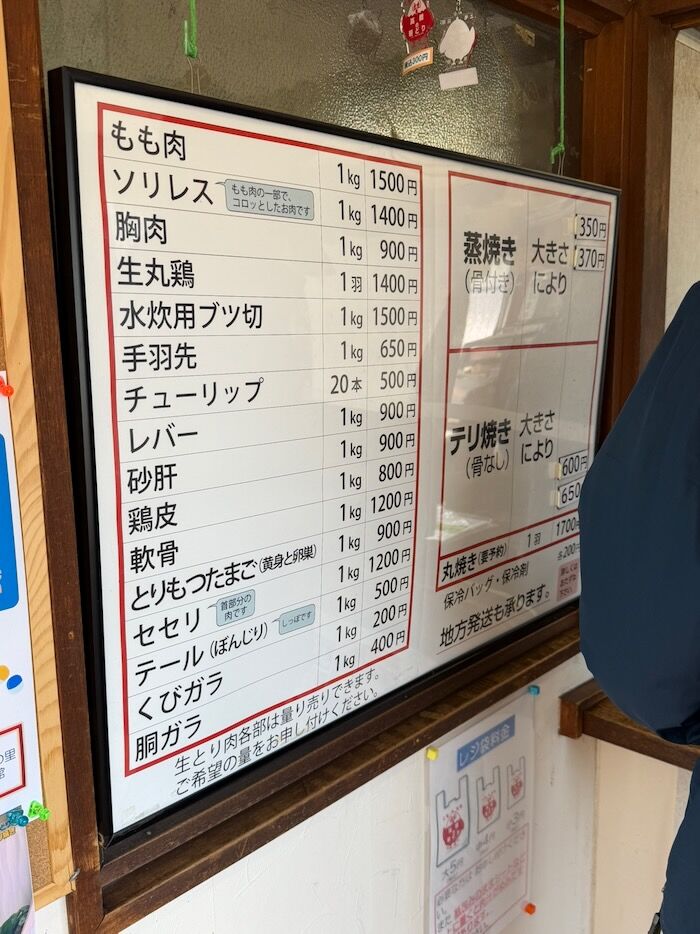 もも肉 1kg 1500円
ソリレス もも肉の一部で、コロッとしたお肉です 1kg 1400円
胸肉 1kg 900円
生丸鶏 1羽 1400円
水炊用ブツ切 1kg 1500円
手羽先 1kg 650円
チューリップ 20本 500円
レバー 1kg 900円
砂肝 1kg 900円
鶏皮 1kg 800円
軟骨 1kg 1200円
とりもつたまご(黄身と卵巣) 1kg 900円
セセリ 首部分の肉です 1kg 1200円
テール(ぼんじり) しっぽです 1kg 500円
くびガラ 1kg 200円
胴ガラ 1kg 400円
生とり肉各部は量り売りできます。
ご希望の量をお申し付けください。
蒸焼き
(骨付き)
大きさ
により
350円
370円
テリ焼き
(骨なし)
大きさ
により
600円
650
丸焼き(要予約) 1羽 1700
保冷バッグ・保冷剤 各200
地方発送も承ります。
レジ袋料金
大5円
中4円
小3円